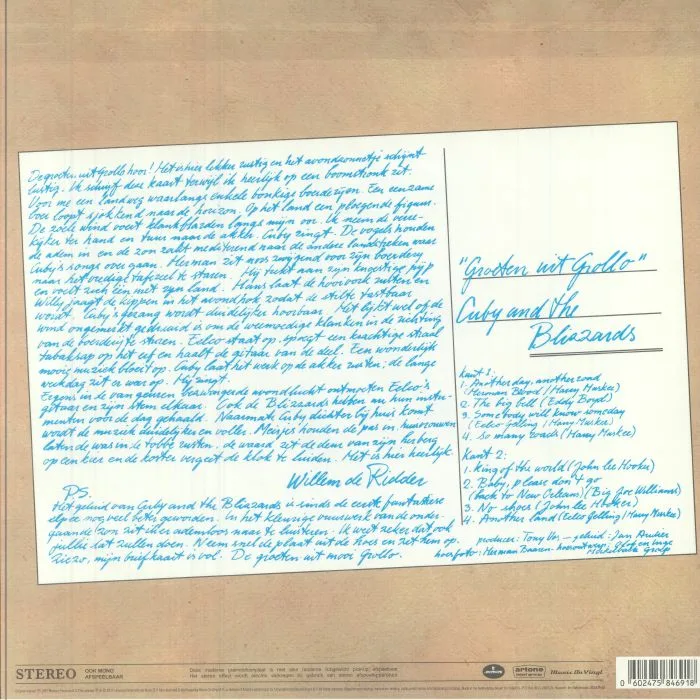 De groeten uit Grollo hoor! Het is hier lekker rustig en het avondzonnetje schijnt
lustig. Ik schrijf deze kaart terwijl ik heerlijk op een boomstronk zit.
Voor me een landweg waarlangs enkele bonkige boerderijen. Een eenzame
boer loopt sjokkend naar de horizon. Op het land een ploegende figuur.
De zoele wind voert klankflarden langs mijn oor. Ik neem de verre-
kijker ter hand en tuur naar de akker. Cuby zingt. De vogels houden
de adem in en de zon zakt mediterend naar de andere landstreken waar
Cuby's songs over gaan. Herman zit nors zwijgend voor zijn boerderij
naar het vredig tafereel te staren. Hij trekt aan zijn knoestige pijp
en voelt zich één met zijn land. Hans laat de hooivork rusten en
Willy jaagt de kippen in het avondhok zodat de stilte tastbaar
wordt. Cuby's gezang wordt duidelijker hoorbaar. Het lijkt wel of de
wind ongemerkt gedraaid is om de weemoedige klanken in de richting
van de boerderij te sturen. Eelco staat op, spoegt een krachtige straal
tabaksap op het erf en haalt de gitaar van de deel. Een wonderlijk
mooie muziek bloeit op. Cuby laat het werk op de akker rusten; de lange
werkdag zit er weer op. Hij zingt.
Ergens in de van geuren bezwangerde avondlucht ontmoeten Eelco's
gitaar en zijn stem elkaar. Ook de Blizzards hebben nu hun instru-
menten voor de dag gehaald. Naarmate Cuby dichter bij huis komt
wordt de muziek duidelijker en voller. Meisjes houden de pas in, huisvrouwen
laten de was in de tobbe rusten, de waard zet de deur van zijn herberg
op een kier en de koster vergeet de klok te luiden. Het is hier heerlijk.
Willem de Ridder
P.S.
Het geluid van Cuby and the Blizzards is sinds de eerste fantastiese
elpee nog veel beter geworden. In het kleurige vuurwerk van de onder-
gaande zon zit ik er ademloos naar te luisteren. Ik weet zeker dat ook
jullie dat zullen doen. Neem snel de plaat uit de hoes en zet hem op.
Ziezo, mijn briefkaart is vol. De groeten uit mooi Grollo.
"Groeten uit Grollo"
Cuby and the
Blizzards
kant 1:
1. Another day, another road
(Herman Brood / Harry Muskee)
2. The big bell (Eddy Boyd)
3. Somebody will know someday
(Eelco Gelling / Harry Muskee)
4. So many roads (Harry Muskee)
kant 2:
1. King of the world (John Lee Hooker)
2. Baby, please don't go
(back to New Orleans) (Big Joe Williams)
3. No shoes (John Lee Hooker)
4. Another land (Eelco Gelling / Harry Muskee)
producer: Tony Vos - geluid: Jan Audier
hoesfoto: Herman Baaren - hoesontwerp:
STEREO
OOK MONO
AFSPEELBAAR
artone
Music On Vinyl
0 602475 846918